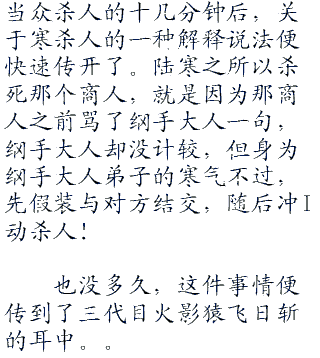 当众杀人的十几分钟后，关
于寒杀人的一种解释说法便
快速传开了。陆寒之所以杀
死那个商人，就是因为那商
人之前骂了纲手大人一句，
纲手大人却没计较，但身为
纲手大人弟子的寒气不过，
先假装与对方结交，随后冲I
动杀人！
也没多久，这件事情便
传到了三代目火影猿飞日斩
的耳中。。